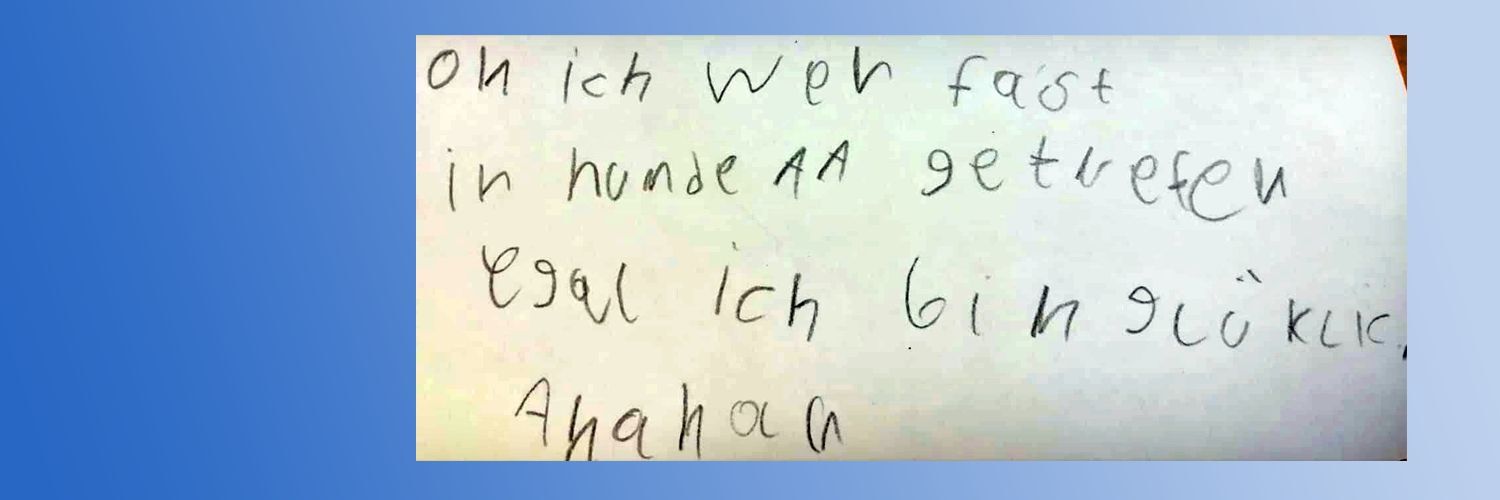 Oh ich wer fast
in hunde AA getrefen
egal ich bin glüklic
Ahahaa